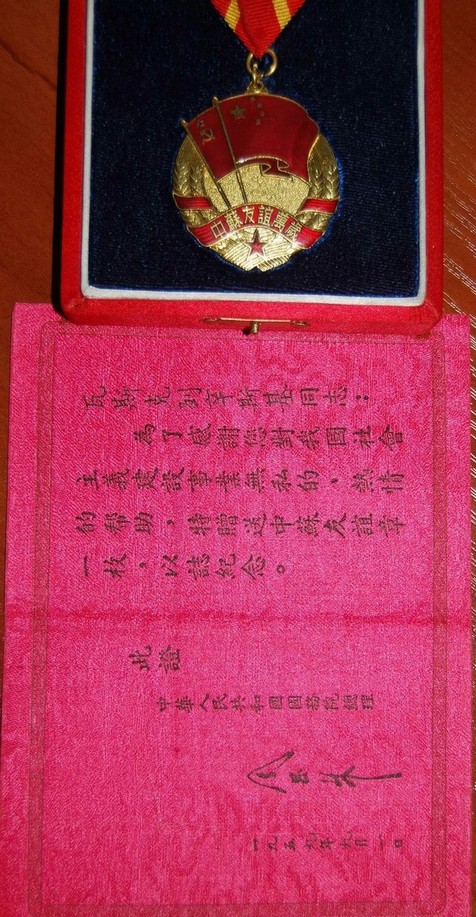 中蘇友誼萬歲
瓦斯克列辛斯基同志：
為了感謝您對我國社會
主義建設事業無私的、熱情
的幫助，特贈送中蘇友誼章
一枚，以誌紀念。
此證
中華人民共和國國務院總理
周恩来
一九五九年九月一日